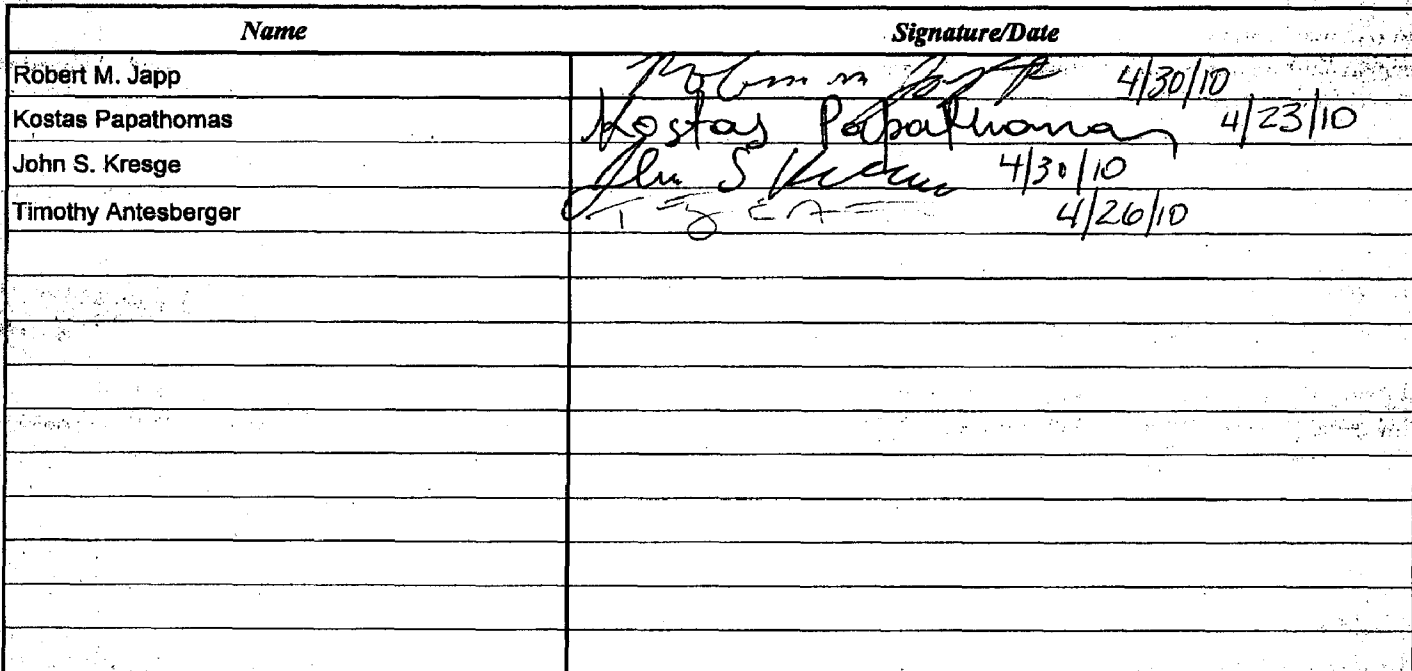 Name Signature/Date
Robert M. Japp 4/30/10
Kostas Papathomas Kostas Papathomas 4/23/10
John S. Kresge John S Kresge 4/30/10
Timothy Antesberger 4/26/10